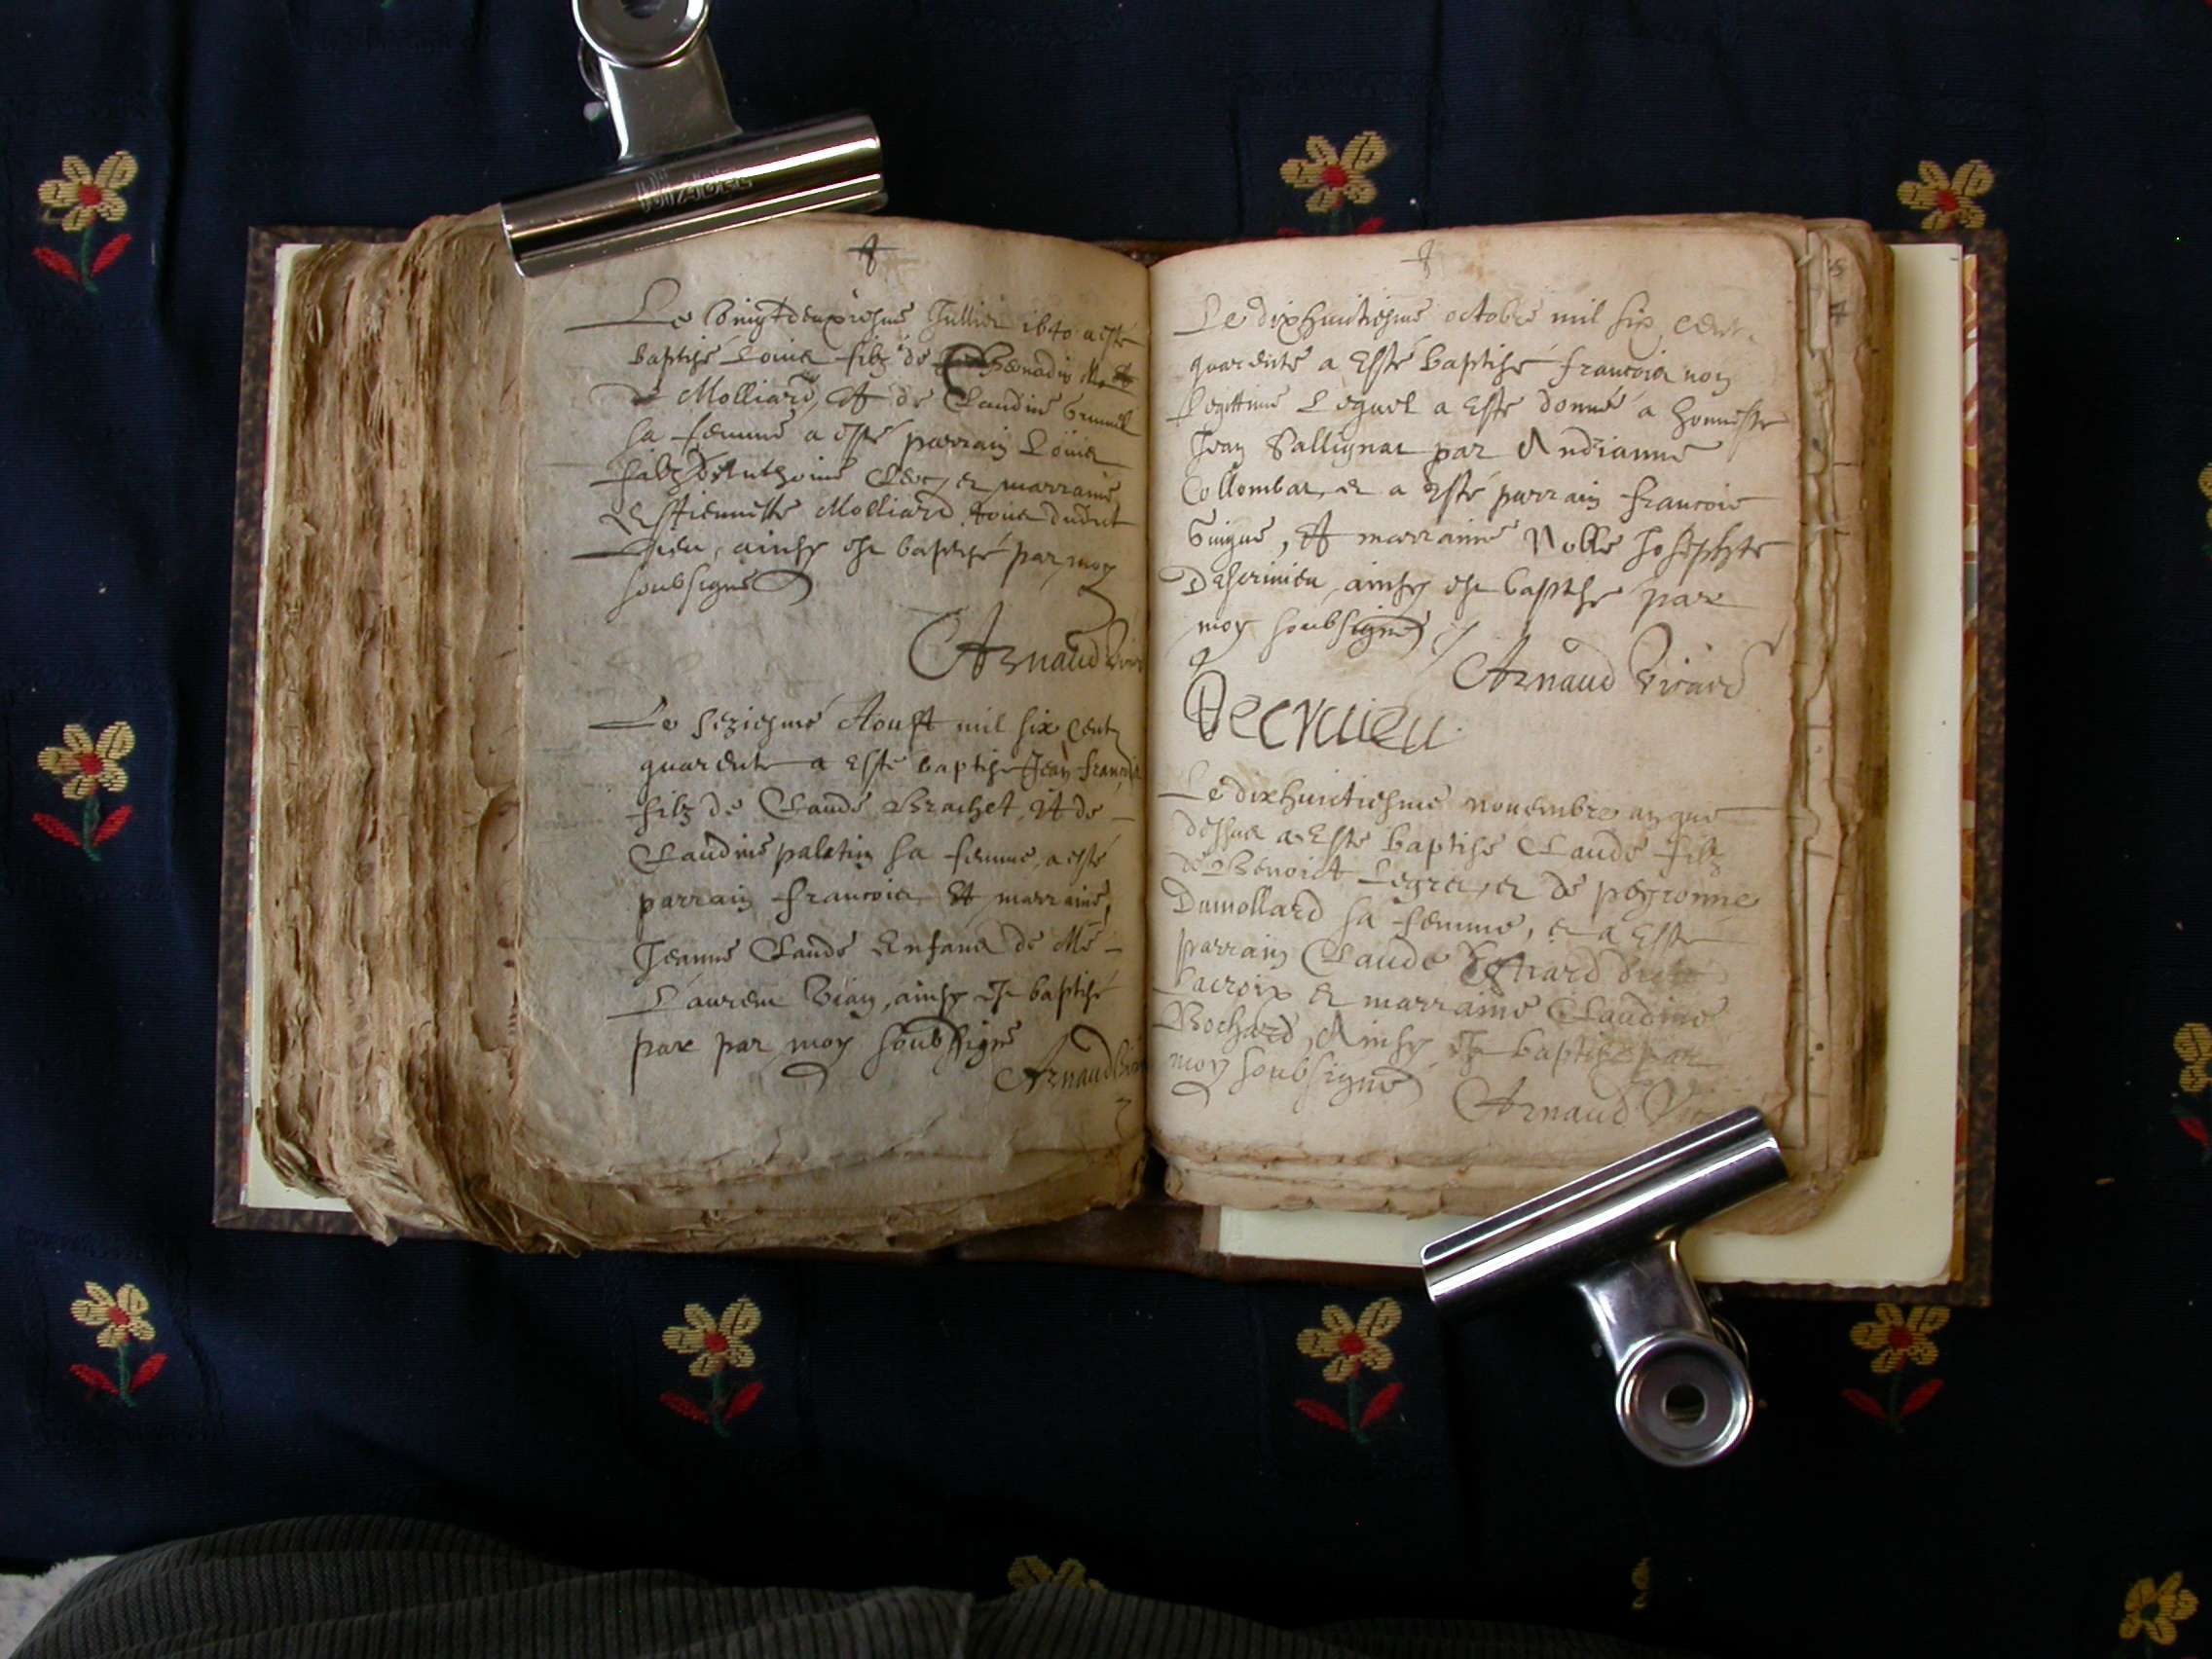 Le vingtdeuxiesme Jullier 1640 a esté
baptisé Louis filz de Benadin
de Molliard, et de Claudine
sa femme a esté parrain Louis
filz d'Anthoine Clerc, et marraine
Estiennette Molliard tous dudict
lieu, ainsy est baptisé par moy
soubsigné
Arnaud
Le seziesme Aoust mil six cent
quarente a esté baptisé Jean François
filz de Claude Brachet, et de
Claudine paletin sa femme, a esté
parrain francois et marraine,
Jeanne Claude Enfans de Me
Laurens Vian, ainsy est baptisé
par par moy soubsigné
Arnaud
Le dixhuictiesme octobre mil six cent
quarente a Esté baptisé francois non
legittime Lequel a esté donné a honneste
Jean Sallignat par Andrianne
Collombat, et a Esté parrain francois
Guigue, et marraine Noble Josephte
ainsy est baptisé par
moy soubsigné
Arnaud Vicaire
Decruieu
Le dixhuictiesme novembre an que
dessus a Esté baptisé Claude filz
de Benoict Legra, et de peyronne
Dumollard sa femme, et a Esté
parrain Claude dict
Lacroix et marraine Claudine
Bochard, Ainsy est baptisé par
moy soubsigné
Arnaud